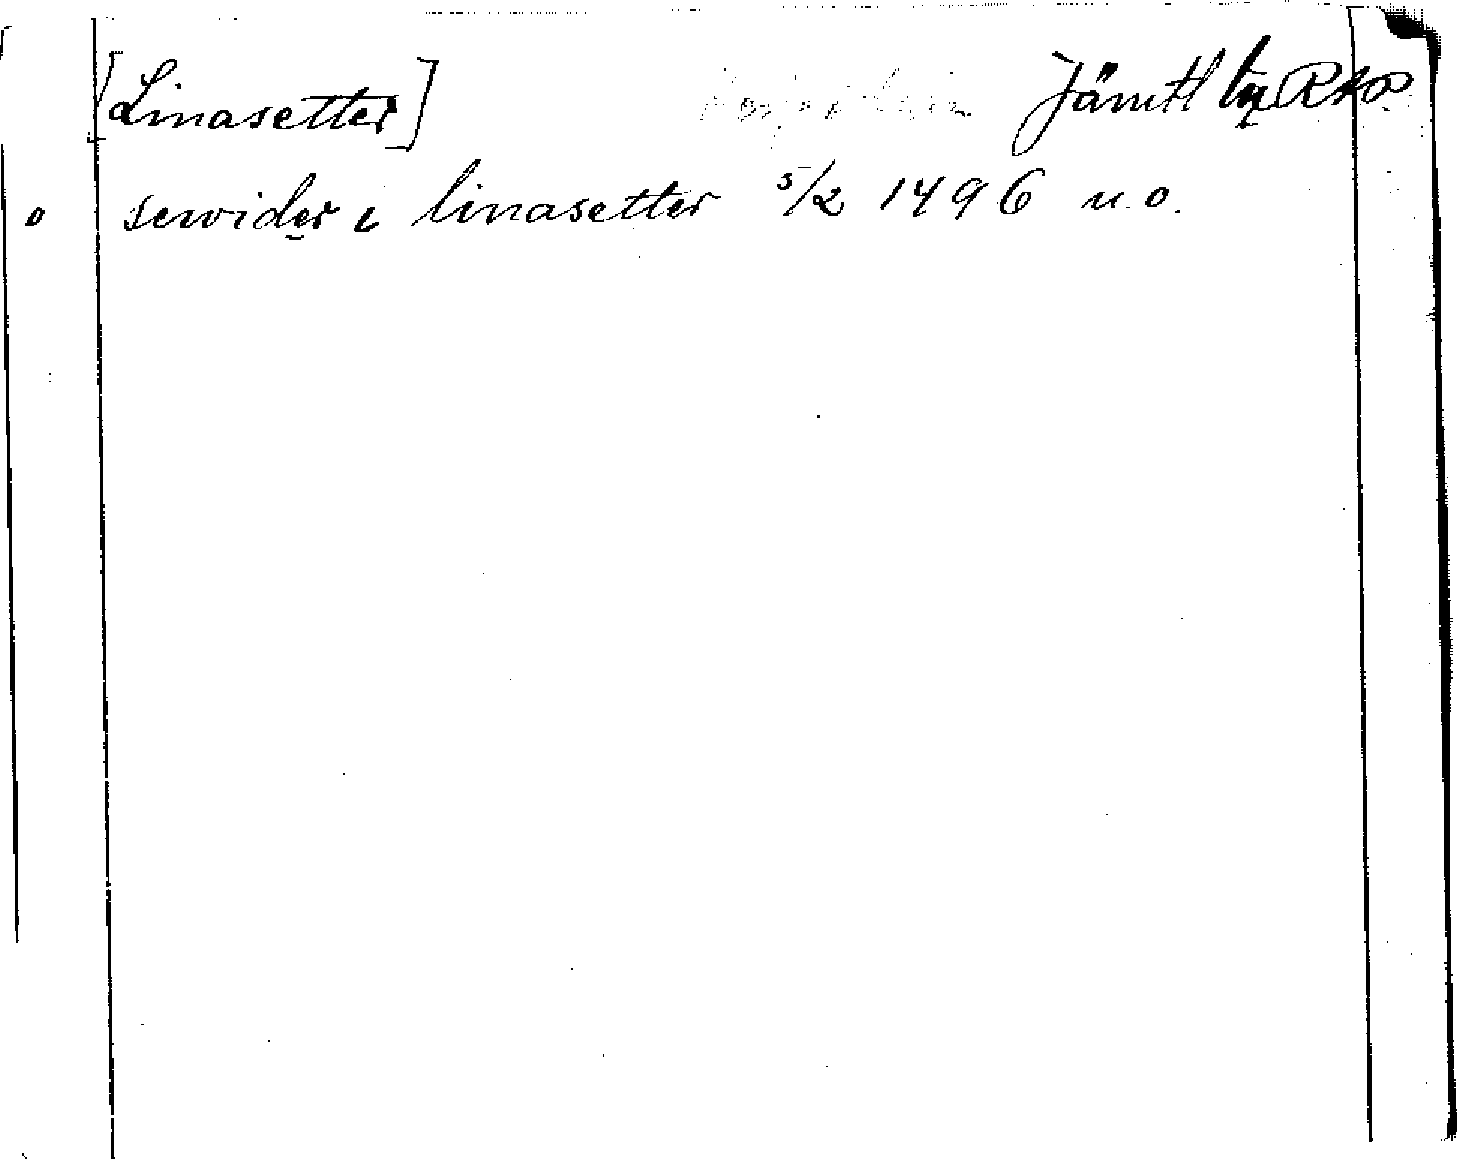 [Linasetter] Jämtl
o sewider i linasetter 5/2 1496 u.o.